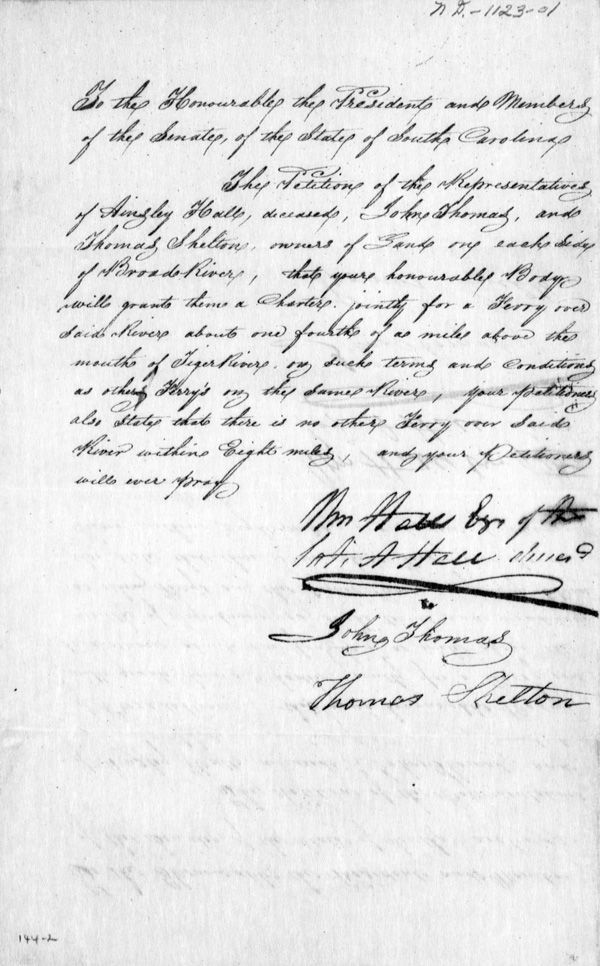 N.D.-1123-01
To the Honourable the President and Members
of the Senate, of the State of South Carolina
The Petition of the Representatives
of Ainsley Hall, deceased, John Thomas, and
Thomas Shelton, owners of Land on each side
of Broad River, that your honourable Body
will grant them a Charter jointly for a Ferry over
said River about one fourth of a mile above the
mouth of Tiger River on such terms and conditions
as other Ferry's on the same River, your petitioners
also State that there is no other Ferry over Said
River within Eight miles, and your Petitioners
will ever pray
Wm Hall Exr of the
A Hall
John Thomas
Thomas Shelton
144-2